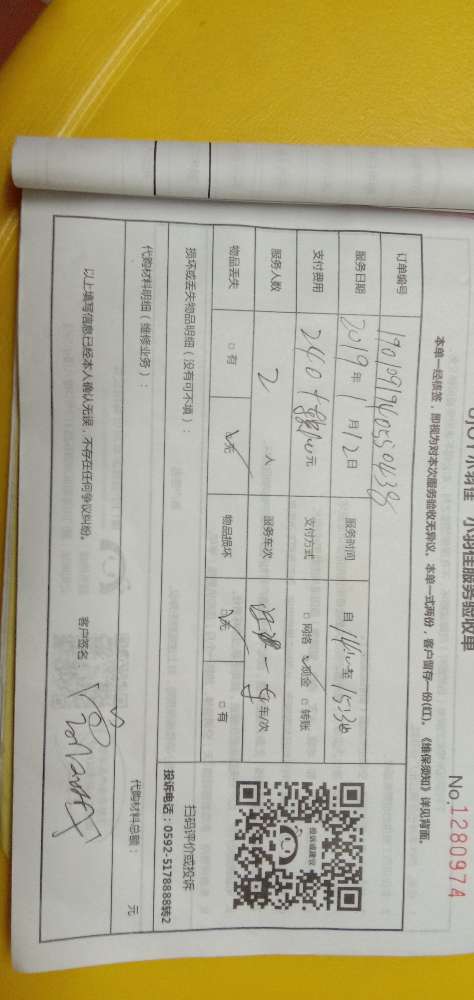 小羽佳服务验收单
No.1280974
本单一经核签,即视为对本次服务验收无异议。本单一式两份,客户留存一份(红)。《维保须知》详见背面。
订单编号
服务日期 2019年1月12日 服务时间 自 至 1530
支付费用 240 元 支付方式 □网络 ☑现金 □转账
服务人数 2 人 服务车次 一 车/次
物品丢失 □有 ☑无 物品损坏 ☑无 □有
扫码评价或投诉
投诉电话:0592-5178888转2
投诉或建议
损坏或丢失物品明细(没有可不填):
代购材料明细(维修业务): 代购材料总额: 元
以上填写信息已经本人确认无误,不存在任何争议纠纷。 客户签名: